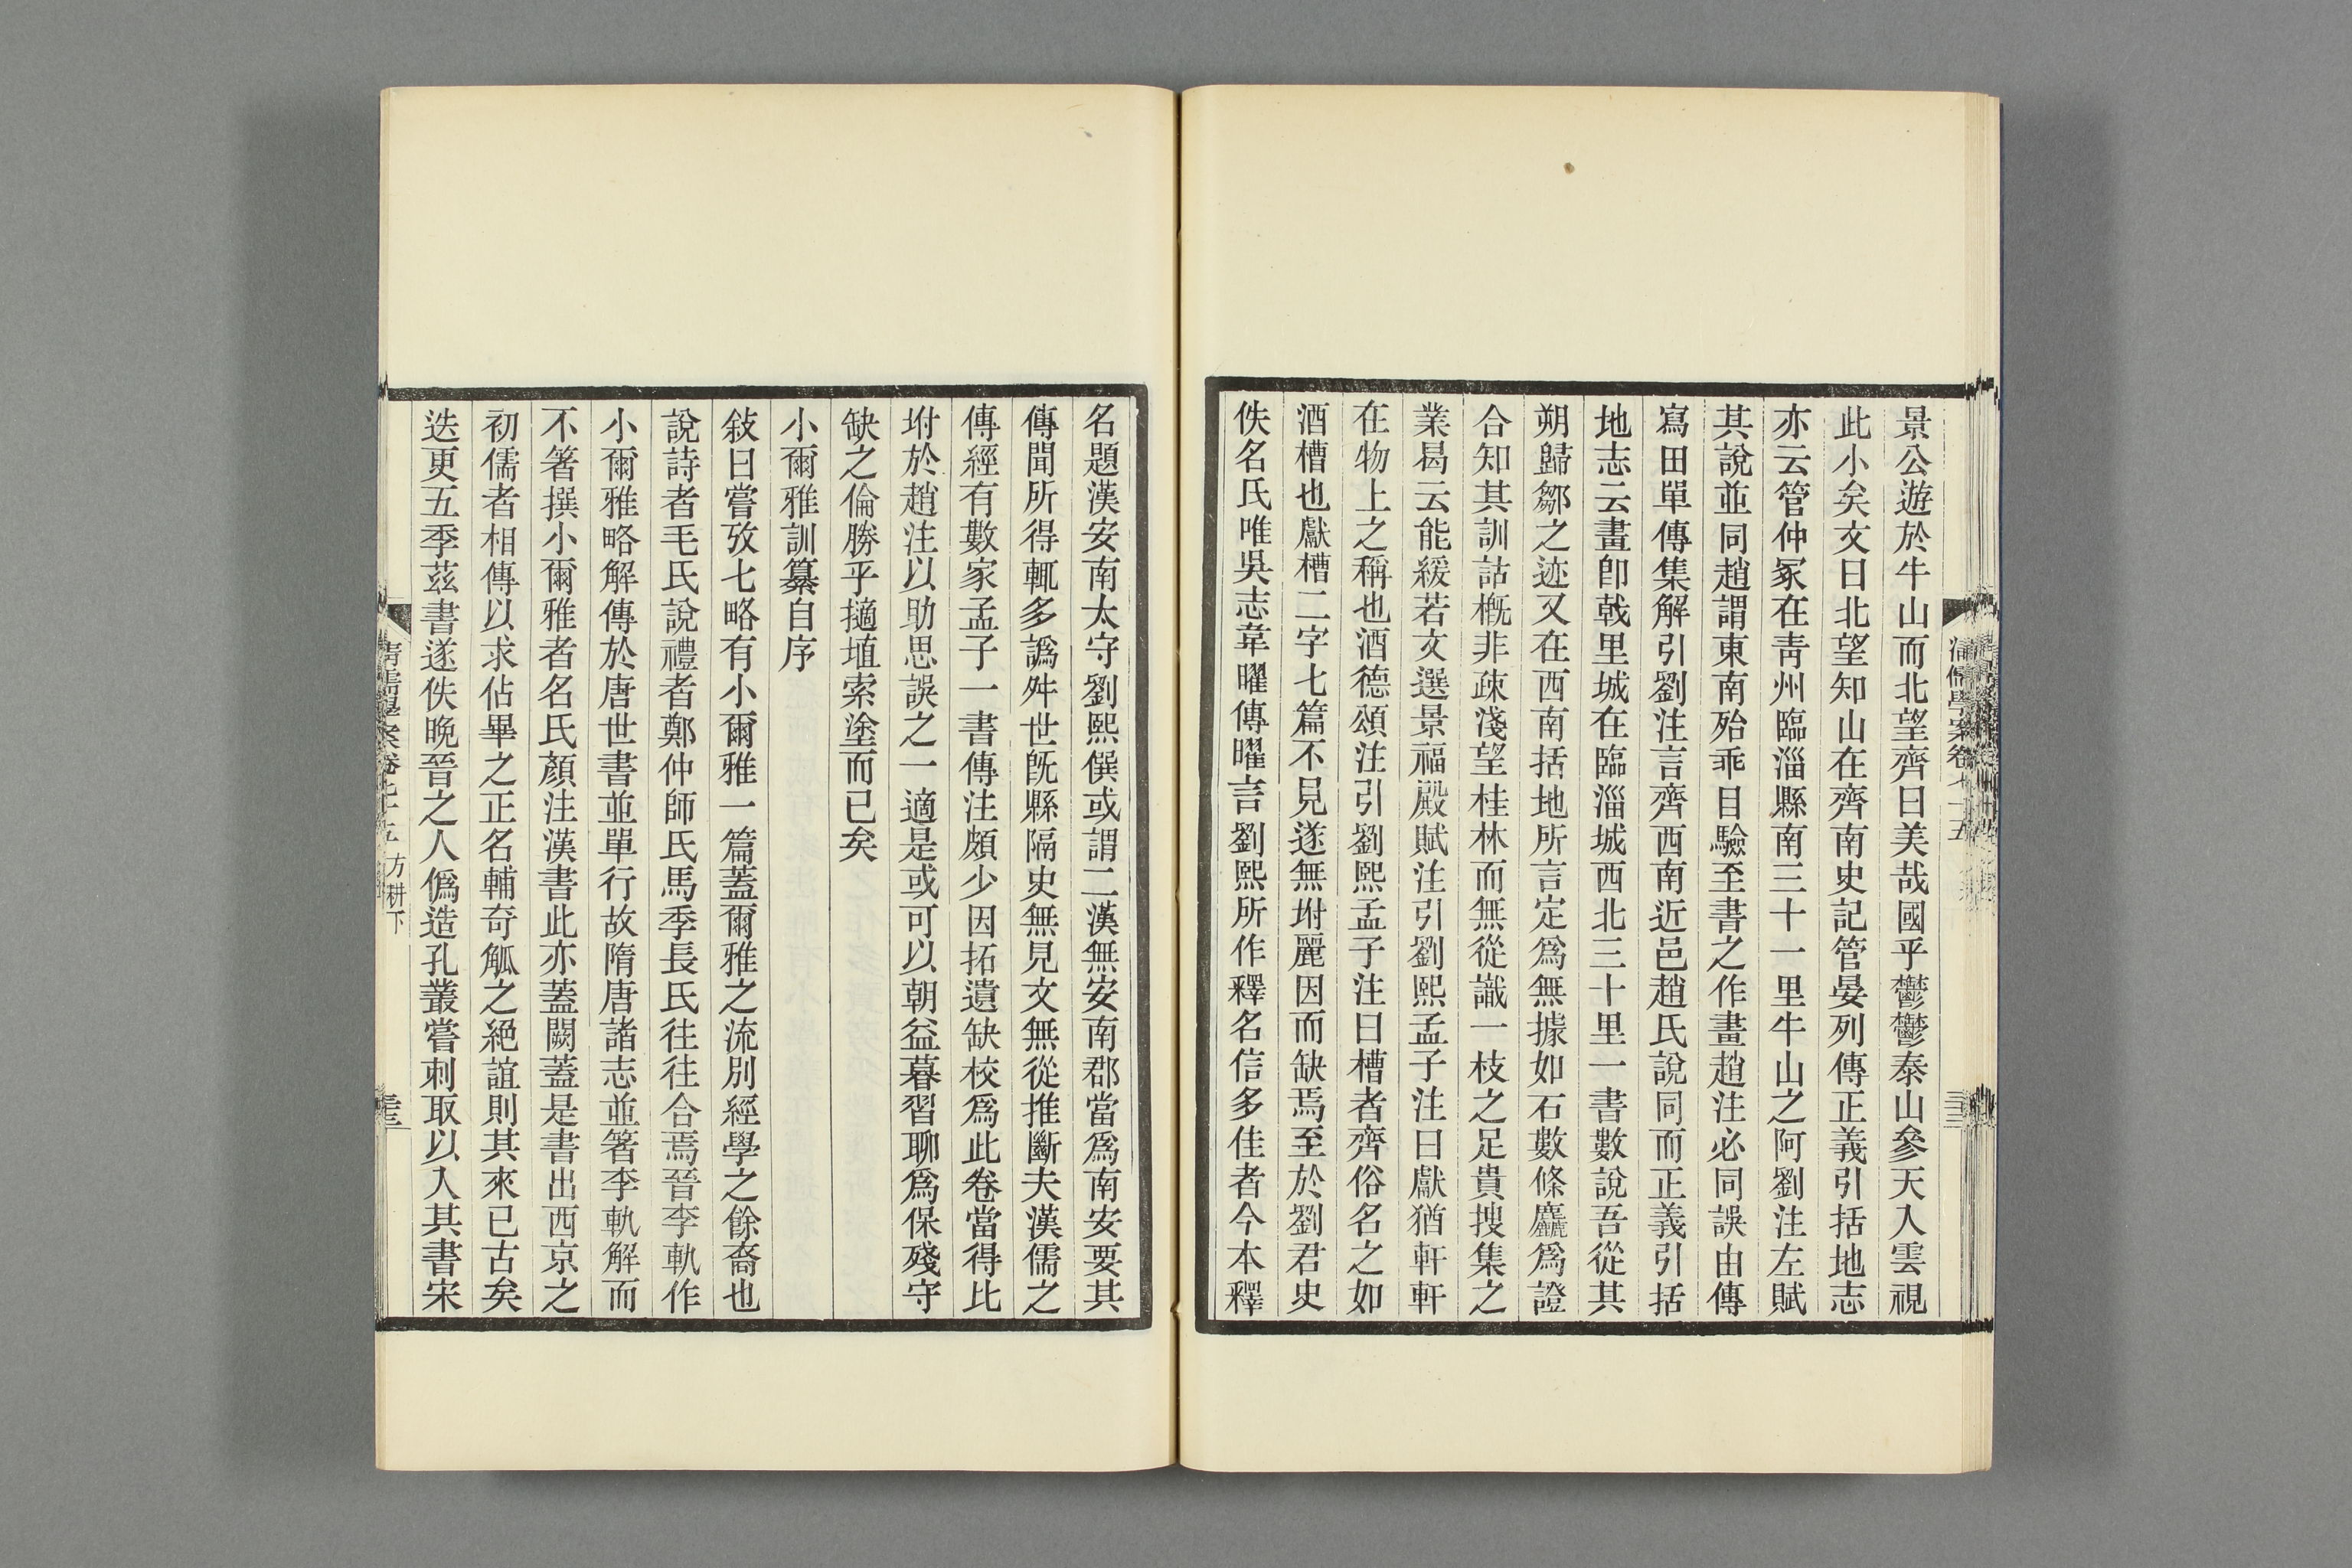 景公遊於牛山而北望齊曰美哉國乎鬱鬱泰山參天入雲視
此小矣文曰北望知山在齊南史記管晏列傳正義引括地志
亦云管仲冢在靑州臨淄縣南三十一里牛山之阿劉注左賦
其說並同趙謂東南殆乖目驗至書之作畫趙注必同誤由傳
寫田單傳集解引劉注言齊西南近邑趙氏說同而正義引括
地志云畫卽戟里城在臨淄城西北三十里一書數說吾從其
朔歸鄒之迹又在西南括地所言定爲無據如石數條麤爲證
合知其訓詁槪非疎淺望桂林而無從識一枝之足貴搜集之
業曷云能緩若文選景福殿賦注引劉熙孟子注曰獻猶軒軒
在物上之稱也酒德頌注引劉熙孟子注曰槽者齊俗名之如
酒槽也獻槽二字七篇不見遂無坿麗因而缺焉至於劉君史
佚名氏唯吳志韋曜傳曜言劉熙所作釋名信多佳者今本釋
名題漢安南太守劉熙僎或謂二漢無安南郡當爲南安要其
傳聞所得輒多譌舛世旣縣隔史無見文無從推斷夫漢儒之
傳經有數家孟子一書傳注頗少因拓遺缺校爲此卷當得比
坿於趙注以助思誤之一適是或可以朝益暮習聊爲保殘守
缺之倫勝乎擿埴索塗而已矣
小爾雅訓纂自序
敍曰嘗攷七略有小爾雅一篇蓋爾雅之流別經學之餘裔也
說詩者毛氏說禮者鄭仲師氏馬季長氏往往合焉晉李軌作
小爾雅略解傳於唐世書並單行故隋唐諸志並箸李軌解而
不箸撰小爾雅者名氏顏注漢書此亦蓋闕蓋是書出西京之
初儒者相傳以求佔畢之正名輔奇觚之絕誼則其來已古矣
迭更五季茲書遂佚晚晉之人僞造孔叢嘗刺取以入其書宋
清儒學案卷七十五 方耕下